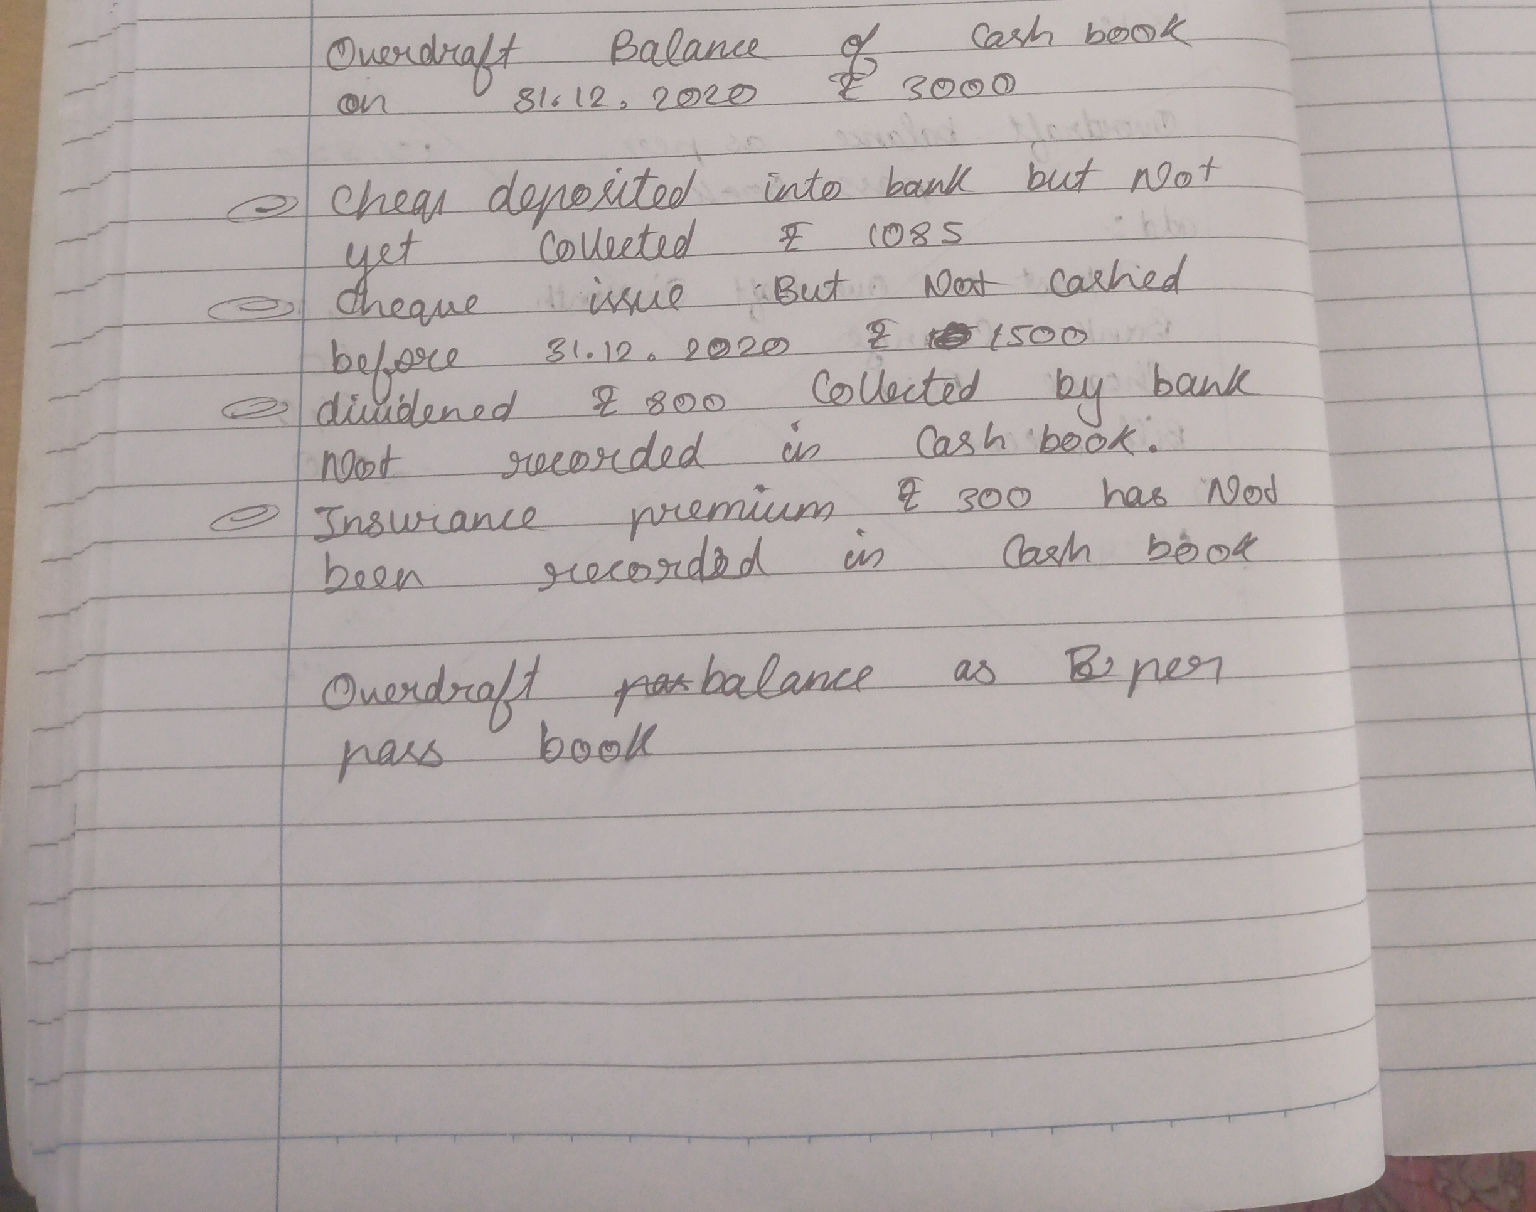 Overdraft Balance of Cash book
on 31.12.2020 ₹ 3000
Cheqs deposited into bank but Not
yet Collected ₹ 1085
Cheque issue But Not Cashed
before 31.12.2020 ₹ 1500
dividened ₹ 800 Collected by bank
Not recorded in Cash book.
Insurance premium ₹ 300 has Not
been recorded in Cash book
Overdraft balance as per
pass book